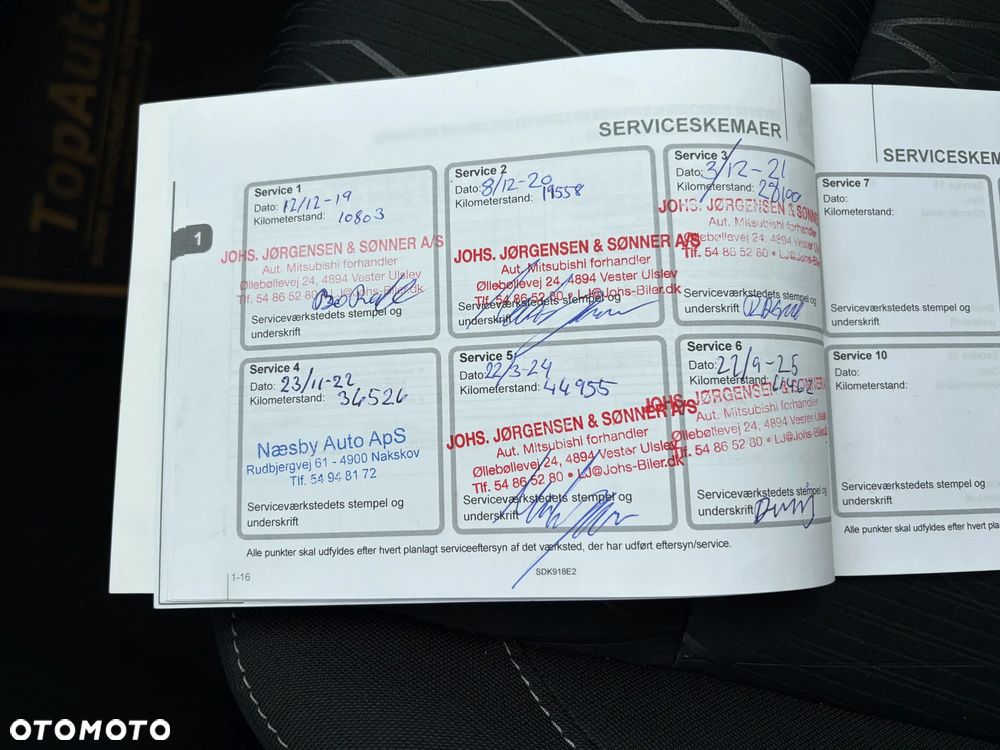 TopAuto
SERVICESKEMAER
Service 1
Dato: 12/12-19
Kilometerstand: 10803
JOHS. JØRGENSEN & SØNNER A/S
Aut. Mitsubishi forhandler
Øllebøllevej 24, 4894 Vester Ulslev
Tlf. 54 86 52 80 • LJ@Johs-Biler.dk
Serviceværkstedets stempel og
underskrift
Service 2
Dato: 8/12-20
Kilometerstand: 19558
JOHS. JØRGENSEN & SØNNER A/S
Aut. Mitsubishi forhandler
Øllebøllevej 24, 4894 Vester Ulslev
Tlf. 54 86 52 80 • LJ@Johs-Biler.dk
Serviceværkstedets stempel og
underskrift
Service 3
Dato: 3/12-21
Kilometerstand: 28100
JOHS. JØRGENSEN & SØNN
Aut. Mitsubishi forhandler
Øllebøllevej 24, 4894 Vester Ulslev
Tlf. 54 86 52 80 • LJ@Johs-Biler
Serviceværkstedets stempel og
underskrift
1
Service 4
Dato: 23/11-22
Kilometerstand: 36526
Næsby Auto ApS
Rudbjergvej 61 - 4900 Nakskov
Tlf. 54 94 81 72
Serviceværkstedets stempel og
underskrift
Service 5
Dato: 22/3-24
Kilometerstand: 44955
JOHS. JØRGENSEN & SØNNER A/S
Aut. Mitsubishi forhandler
Øllebøllevej 24, 4894 Vester Ulslev
Tlf. 54 86 52 80 • LJ@Johs-Biler.dk
Serviceværkstedets stempel og
underskrift
Service 6
Dato: 22/9-25
Kilometerstand:
JOHS. JØRGENSEN & SØNNER
Aut. Mitsubishi forhandler
Øllebøllevej 24, 4894 Vester Ulslev
Tlf. 54 86 52 80 • LJ@Johs-Biler
Serviceværkstedets stempel og
underskrift
Alle punkter skal udfyldes efter hvert planlagt serviceeftersyn af det værksted, der har udført eftersyn/service.
1-16
SDK918E2
SERVICESKEM
Service 7
Dato:
Kilometerstand:
Serviceværkstedets stempel og
underskrift
Service 10
Dato:
Kilometerstand:
Serviceværkstedets stempel og
underskrift
Alle punkter skal udfyldes efter hvert plan
OTOMOTO